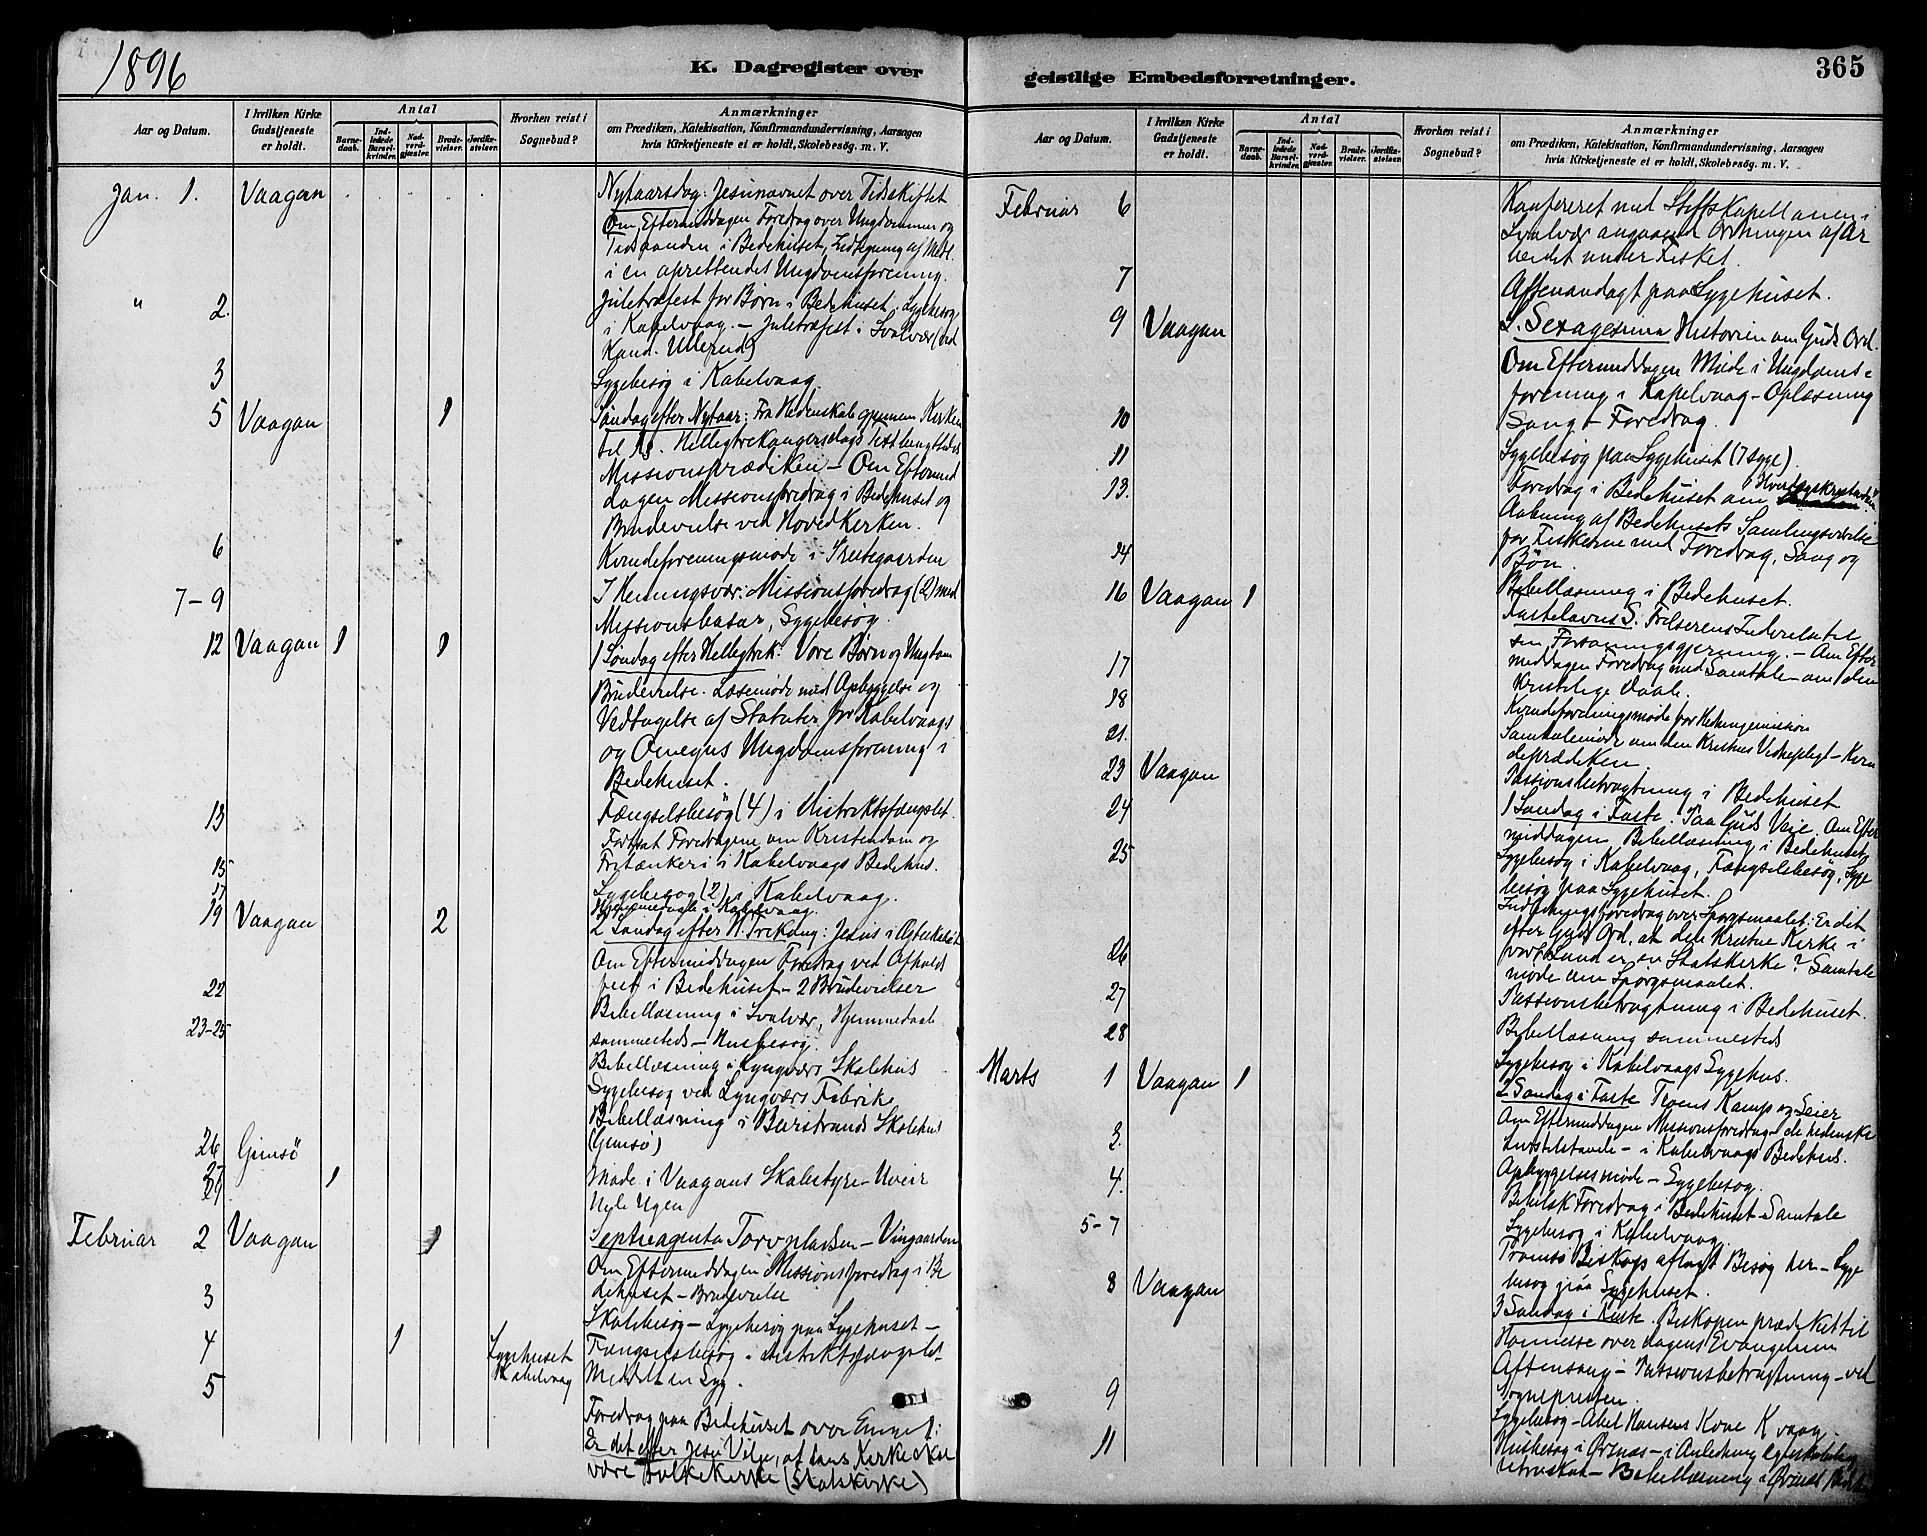 1896
K. Dagregister over
Aar og Datum.
I hvilken Kirke Gudstjeneste er holdt.
Antal
Barnedaab.
Indledede Barselkvinder.
Nadverdgjæster.
Brudevielser.
Jordfæstelser.
Hvorhen reist i Sognebud?
Anmærkninger
om Prædiken, Katekisation, Konfirmandundervisning, Aarsagen
hvis Kirketjeneste ei er holdt, Skolebesøg. m. V.
Jan. 1. Vaagan Nytaarsdag: Jesunavnet over Tidskiftet
Om Eftermiddagen Foredrag over Ungdommen og
Tidsaanden i Bedehuset, Indtegning af Medl.
i en aprettendes Ungdomsforening.
" 2. Juletræfest for Børn i Bedehuset, Sygebesøg
i Kabelvaag. – Juletræfest i Svalvær (ved
Kand. Ullerud)
3 Sygebesøg i Kabelvaag.
5 Vaagan 1 Søndag efter Nytaar: Fra Hedenskab gjennem Kirken
til Helligtrekongersdags Text
Missionsprædiken – Om Eftermid
dagen Missionsforedrag i Bedehuset og
Brudevielse ved Hovedkirken.
6 Kvindeforeningsmøde i
7–9 I Henningsvær: Missionsforedrag (2) med
Missionsbasar, Sygebesøg.
12 Vaagan 1 1 1 Søndag efter Helligtrek: Vore Børn og Ungdom
Brudevielse. Læsemøde med Opbyggelse og
Vedtagelse af Statuter for Kabelvaags
og Omegns Ungdomsforening i
Bedehuset.
13 Fængselsbesøg (4) i Distriktsfængslet.
Fortsat Foredragene om Kristendom og
15 Fritænkeri i Kabelvaags Bedehus.
17 Sygebesøg (2) i Kabelvaag.
Hjemmedaab i Kabelvaag.
19 Vaagan 2 2 Søndag efter H. Trekong: Jesus i
Om Eftermiddagen Foredrag ved Afholds
fest i Bedehuset – 2 Brudevielser
22 Bibellæsning i Svalvær, Hjemmedaab
23–25 sammesteds – Husbesøg.
Bibellæsning i Lyngværs Skolehus
Sygebesøg ved Lyngværs Fabrikk
Bibellæsning i Barstrands Skolehus
26 Gimsö (Gimsø)
1 Møde i Vaagans Skolestyre – Uveir
hele Ugen
Februar 2 Vaagan 1 Septuagesima – Vingaarden
Om Eftermiddagen Missionsforedrag i Be
dehuset – Brudevielse
3 Skolebesøg – Sygebesøg paa Sygehuset –
4 1 Sygehuset Kabelvaag Fængselsbesøg i Distriktsfængslet
5 Meddelt en Syg.
Foredrag paa Bedehuset over Emnet:
Er det efter Jesu Vilje, at hans Kirke skal
være Folkekirke (Statskirke)
geistlige Embedsforretninger.
365
Aar og Datum.
I hvilken Kirke Gudstjeneste er holdt.
Antal
Barnedaab.
Indledede Barselkvinder.
Nadverdgjæster.
Brudevielser.
Jordfæstelser.
Hvorhen reist i Sognebud?
Anmærkninger
om Prædiken, Katekisation, Konfirmandundervisning, Aarsagen
hvis Kirketjeneste ei er holdt, Skolebesøg. m. V.
Februar 6 Konfereret med Stiftskapellanen i
Svalvær angaaende Ordningen af Ar
beidet under Fisket.
7 Aftenandagt paa Sygehuset.
9 Vaagan S. Sexagesima Historien om Guds Ord.
Om Eftermiddagen Møde i Ungdoms-
forening i Kapelvaag – Oplæsning
10 Sang – Foredrag.
11 Sygebesøg paa Sygehuset (7 syge)
13. Foredrag i Bedehuset om
Aabning af Bedehusets Samlingsværelse
14 for Fiskerne med Foredrag, Sang og
Bøn.
16 Vaagan 1 Bibellæsning i Bedehuset.
Fastelavns S. Frelserens
sin Forsoningsgjerning. – Om Efter
17 middagen Foredrag med Samtale – om den
18 kristelige Daab.
Kvindeforeningsmøde for Hedningemission
21. Samtalemøde om den Kristnes
23 Vaagan
Passionsbetragtning i Bedehuset
24 1 Søndag i Faste. Paa Guds Veie. Om Efter
25 middagen Bibellæsning i Bedehuset,
Sygebesøg i Kabelvaag, Fængselsbesøg, Syge
besøg paa Sygehuset.
Indledningsforedrag over Spørgsmaalet: Er det
efter Guds Ord, at den kristne Kirke i
26 vort Land er en Statskirke? Samtale
møde om Spørgsmaalet.
27 Passionsbetragtning i Bedehuset.
28 Bibellæsning sammesteds
Marts 1 Vaagan 1 Sygebesøg i Kabelvaags Sygehus.
2 Søndag i Faste Troens Kamp og Seier
Om Eftermiddagen Missionsforedrag – de hedenske
3. – i Kabelvaags Bedehus.
4. Opbyggelsesmøde – Sygebesøg.
Bibelsk Foredrag i Bedehuset – Samtale
5–7 Sygebesøg i Kabelvaag.
Tromsø Biskop aflagt Besøg her – Syge
8 Vaagan besøg paa Sygehuset.
3 Søndag i Faste. Biskopen prædiket til
Høimesse over dagens Evangelium
Aftensang – Passionsbetragtning – ved
9 Sognepresten.
Sygebesøg – Abel Hansens Kone K vaag.
11 Husbesøg i Ørsnæs – i Anledning
– Bibellæsning i